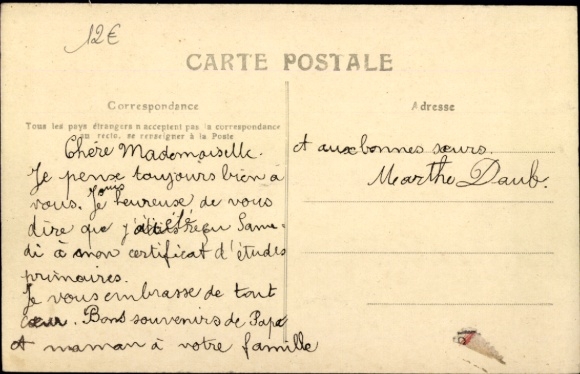 12€
CARTE POSTALE
Correspondance
Tous les pays étrangers n'acceptent pas la correspondance
au recto, se renseigner à la Poste
Chére Mademoiselle.
Je pense toujours bien à
vous. Je heureuse de vous
dire que j'ai été reçu Same-
di à mon certificat d'études
primaires.
Je vous embrasse de tout
cœur. Bons souvenirs de Papa
et maman à votre famille
Adresse
et aux bonnes sœurs.
Marthe Daub.